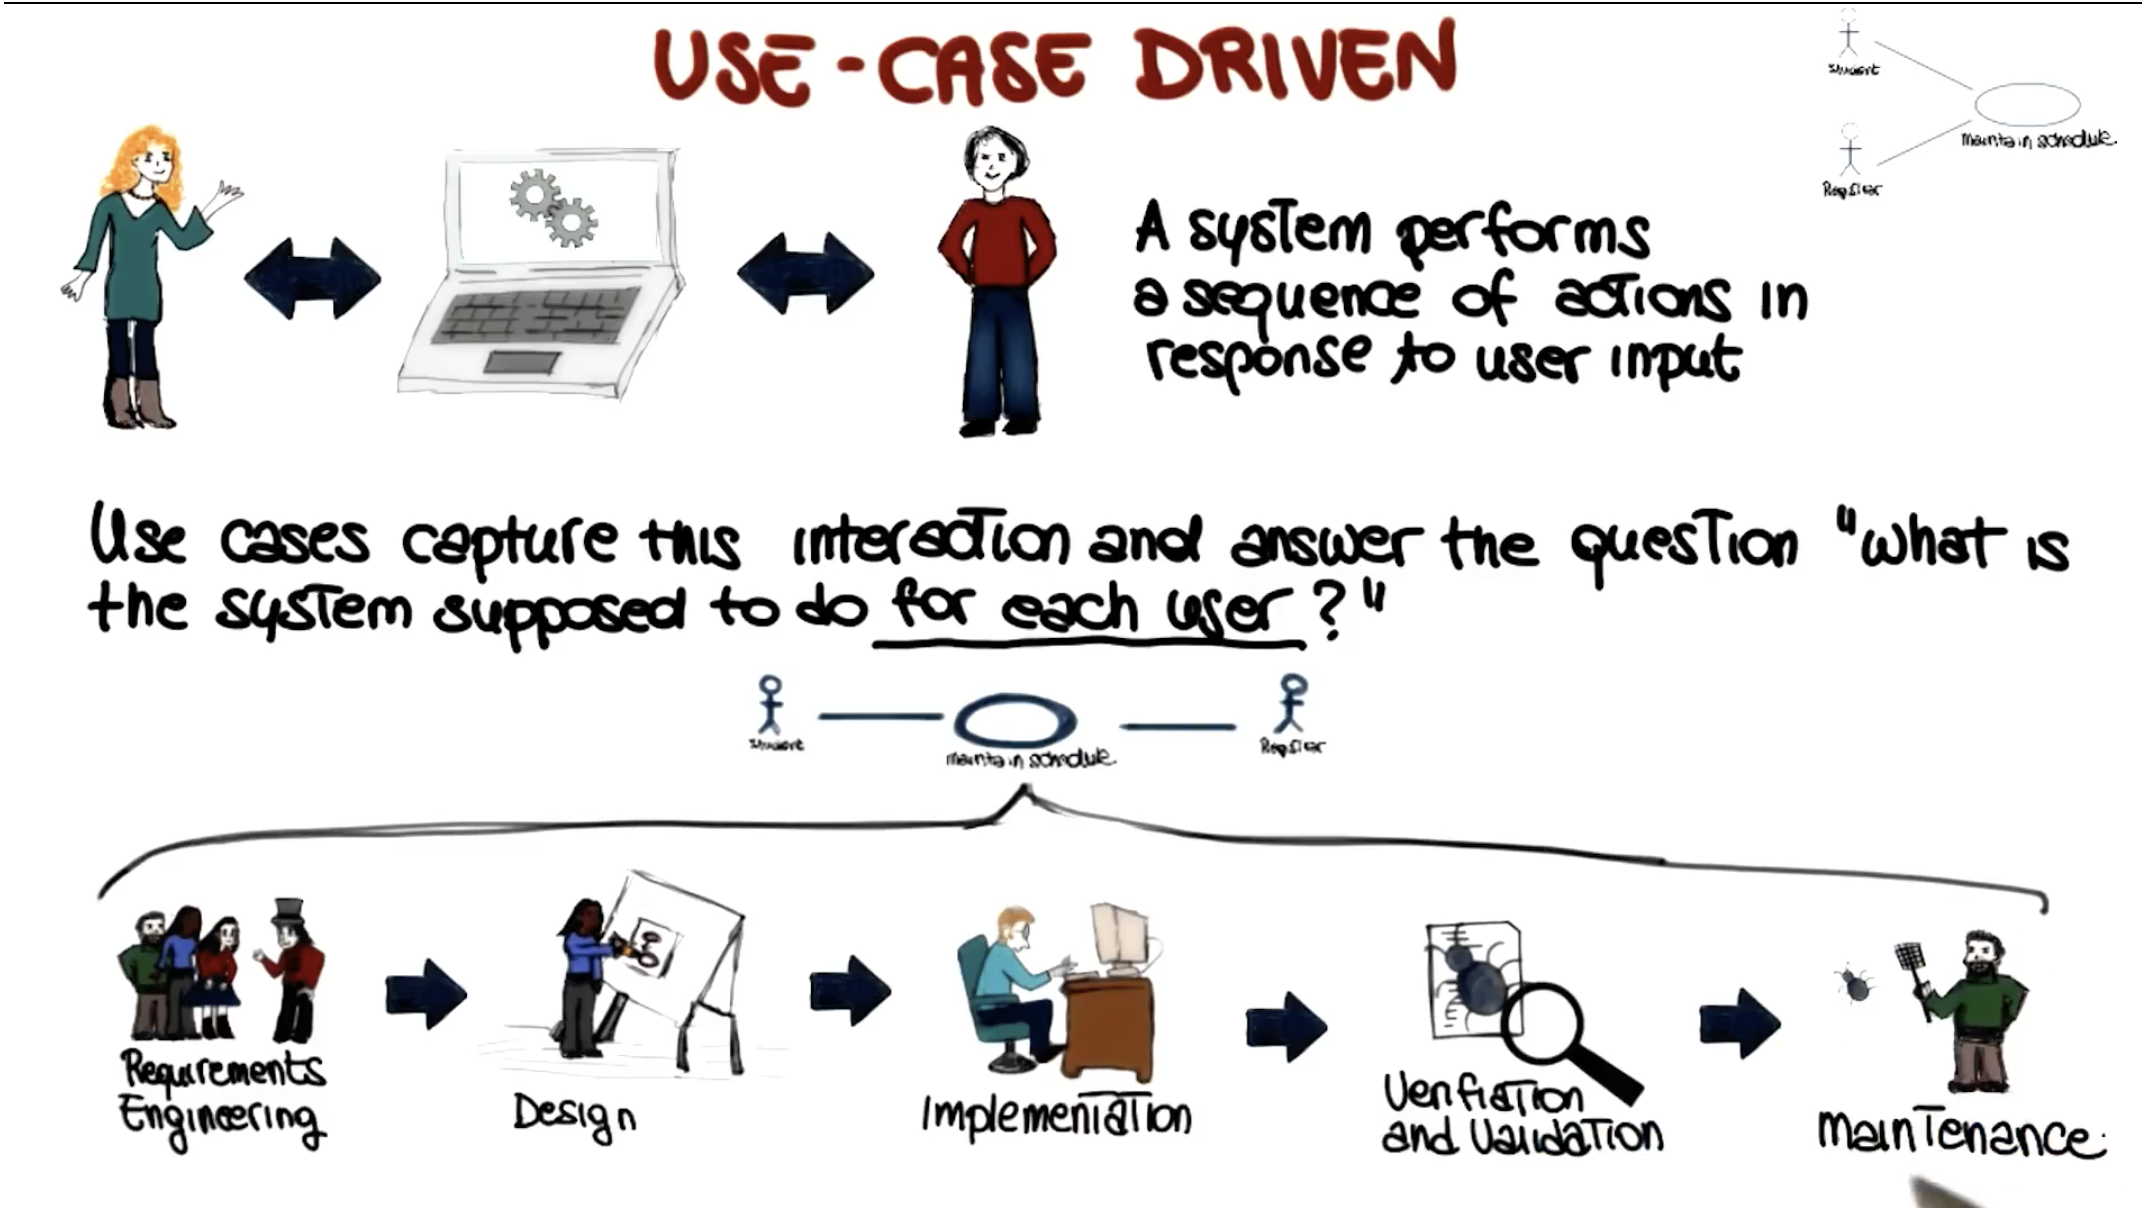 USE-CASE DRIVEN
Student
maintain schedule.
Registrar
A system performs
a sequence of actions in
response to user input
Use cases capture this interaction and answer the question "what is
the system supposed to do for each user?"
Student
maintain schedule.
Registrar
Requirements
Engineering
Design
Implementation
Verifiation
and Validation
Maintenance.